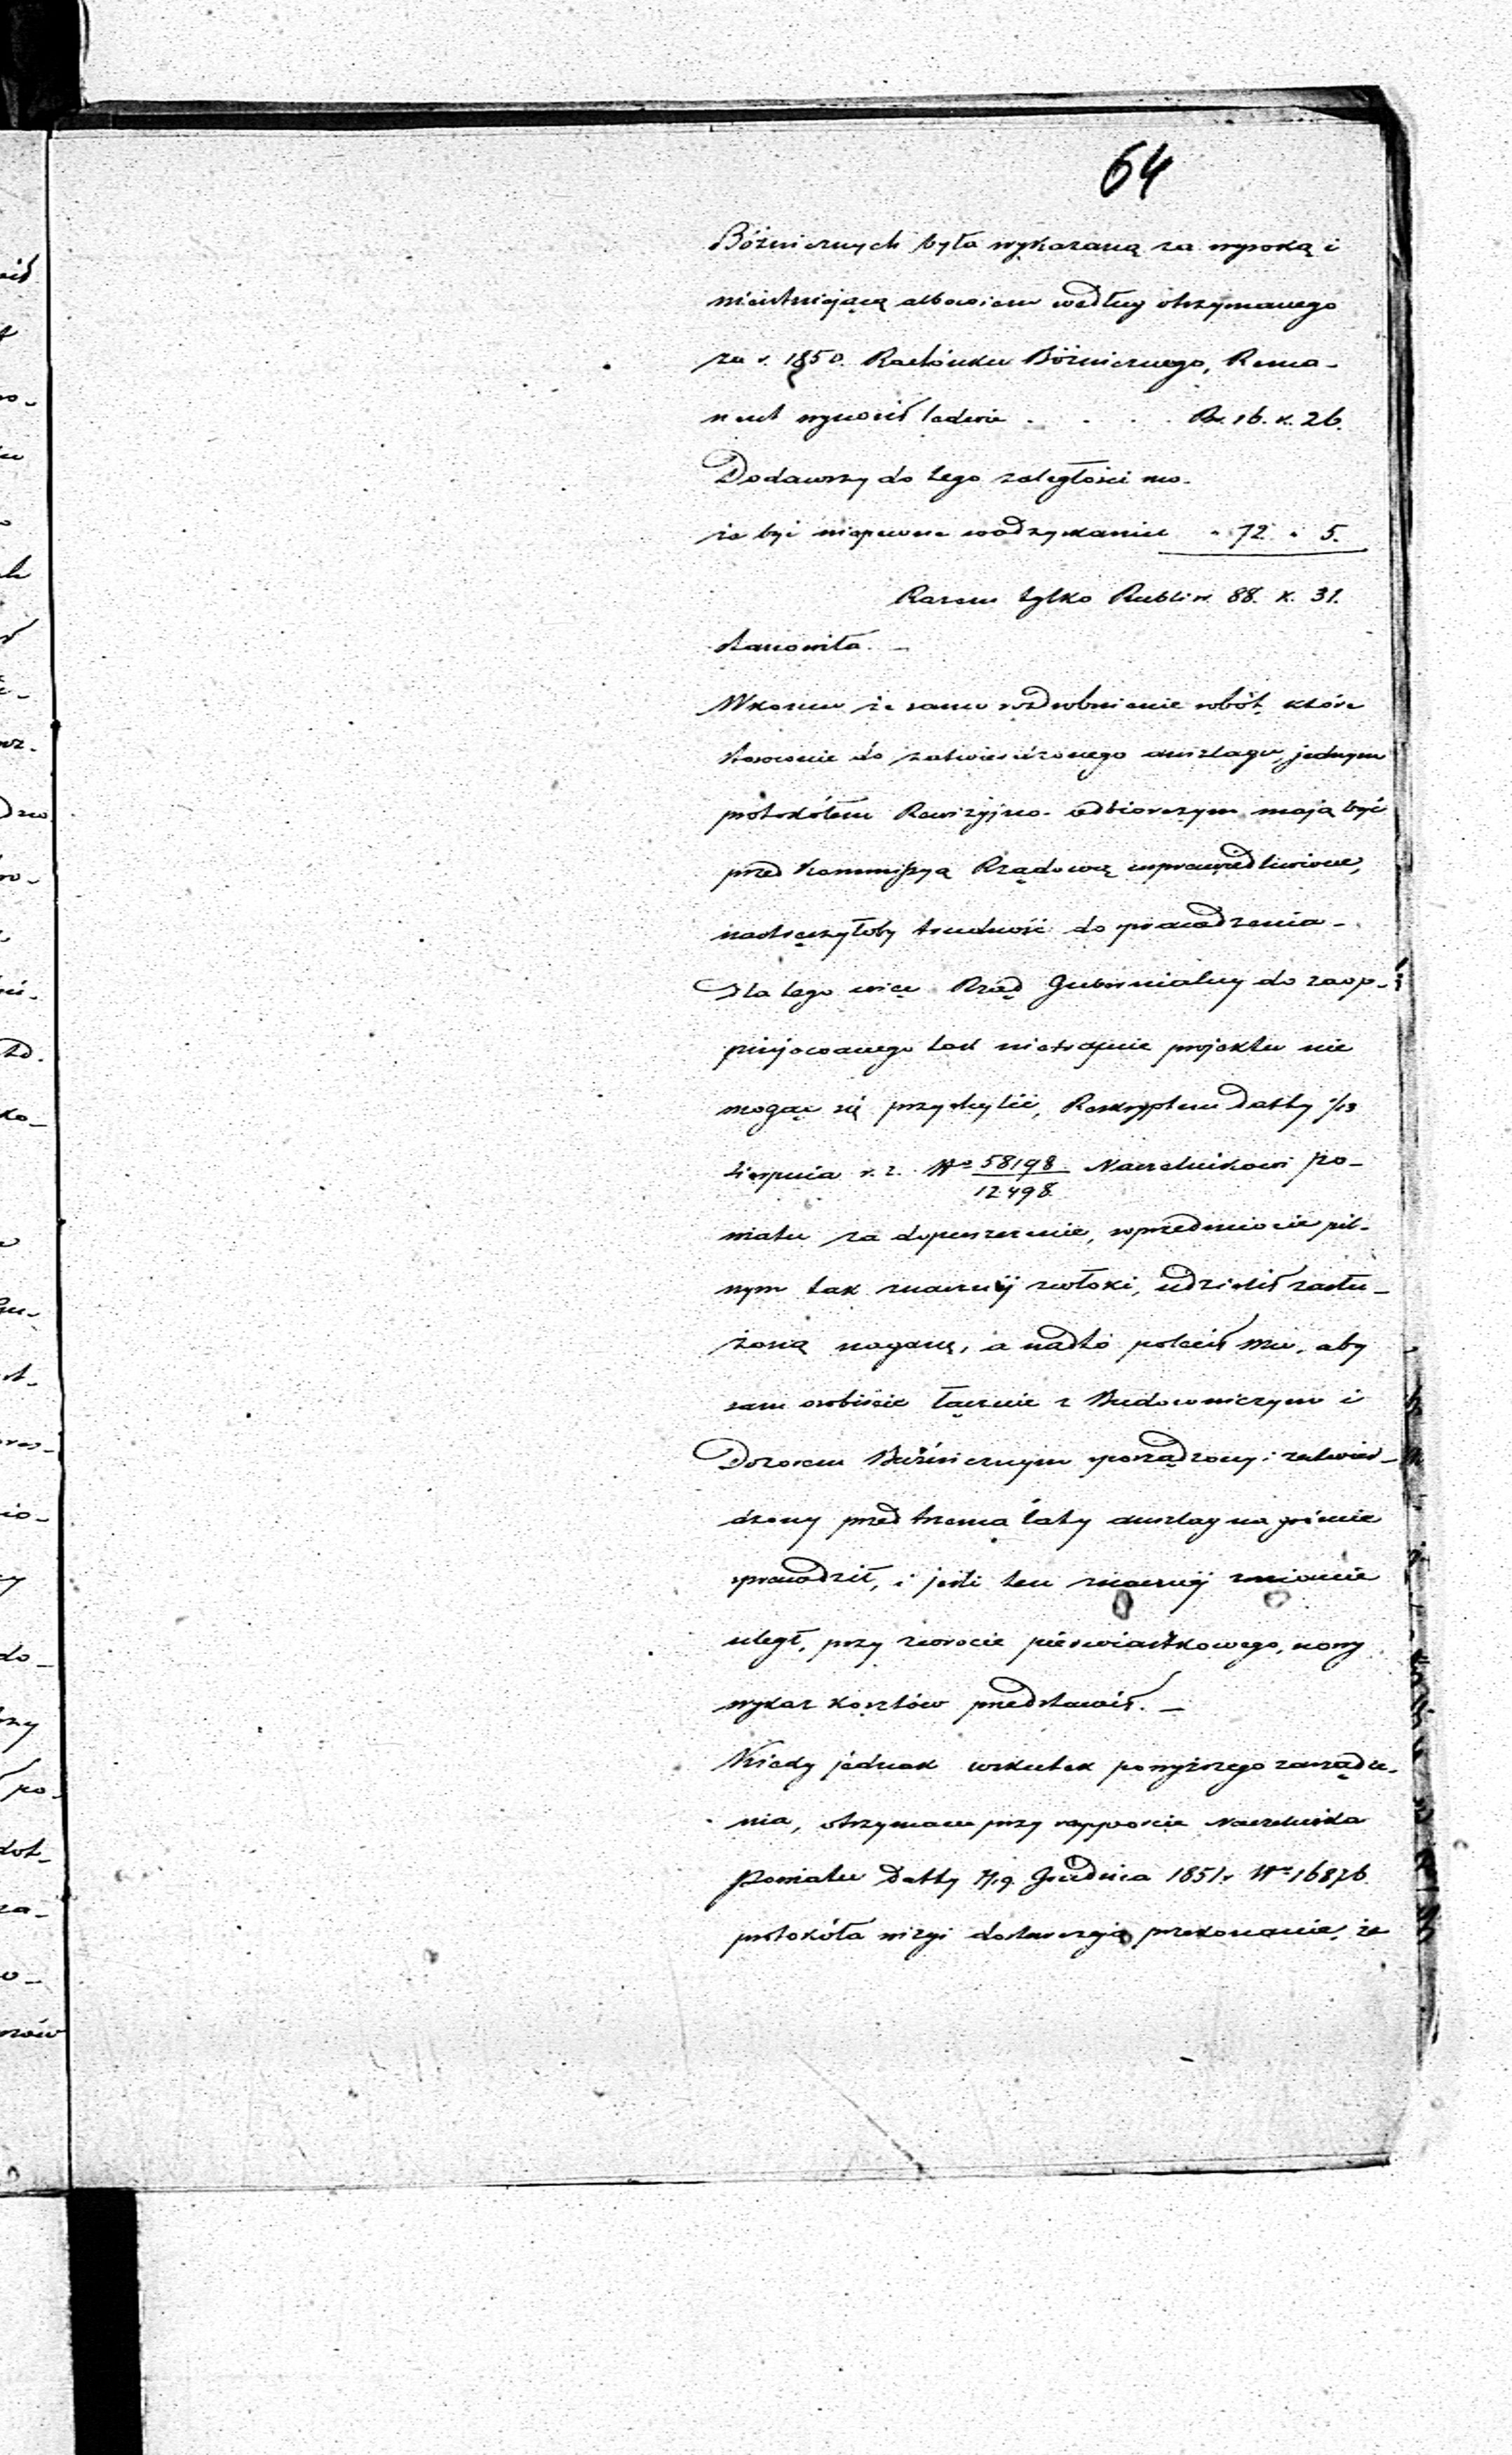 64
Bóżniczych była wykazaną za wysoką i
nieistniejącą albowiem według otrzymanego
za r. 1850. Rachunku Bóżniczego, Rema-
nent wynosił ledwie . . . . Rs. 16. k. 26.
Dodawszy do tego zaległości mo-
że być niepewne w odzyskaniu " 72 " 5.
Razem tylko Rubli sr. 88. k. 31.
stanowiła. –
W końcu że samo rozdrobnienie robót, które
stosownie do zatwierdzonego anszlagu, jednym
protokółem Rewizyjno-odbiorczym mają być
przed Kommissyą Rządową usprawiedliwione,
nastręczyłoby trudność do sprawdzenia –
Dla tego więc Rząd Gubernialny do zaop-
piniowanego tak nietrafnie projektu nie
mogąc się przychylić, Reskryptem Datty 1/13
Sierpnia r. z. No 58198/12498 Naczelnikowi Po-
wiatu za dopuszczenie, w przedmiocie pil-
nym tak znacznej zwłoki, udzielił zasłu-
żoną naganę, a nadto polecił mu, aby
sam osobiście łącznie z Budowniczym i
Dozorem Bóżniczym sporządzony i zatwier-
dzony przed trzema laty anszlag na gruncie
sprawdził, i jeśli ten znacznej zmianie
uległ, przy zwrocie pierwiastkowego, nowy
wykaz kosztów przedstawił. –
Kiedy jednak wskutek powyższego zarządze-
nia, otrzymane przy rapporcie Naczelnika
Powiatu Datty 7/19 Grudnia 1851 r. No 16876
protokóła wizyi dostarczają przekonanie, że